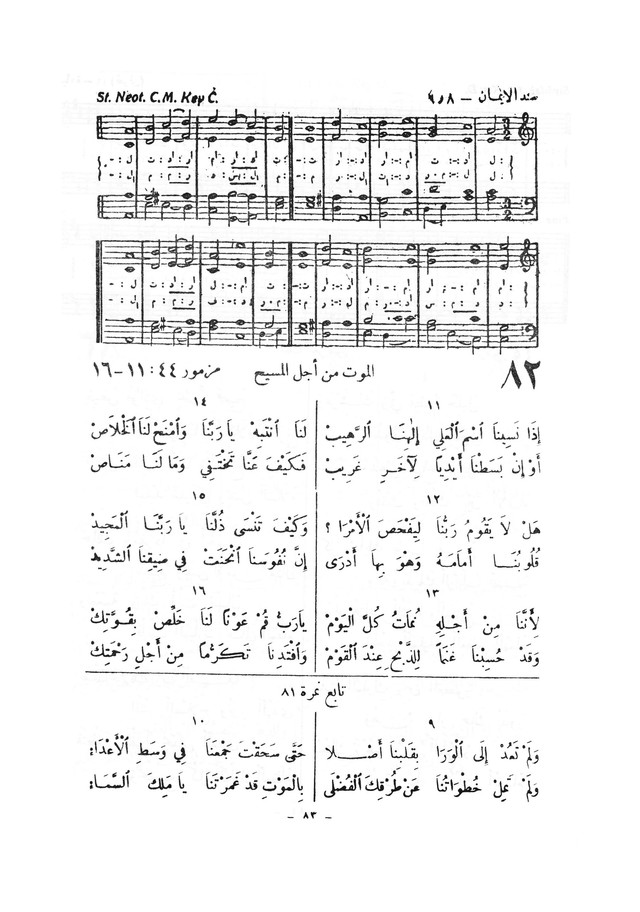 سند الإيمان – ٨ و ٩
St. Neot. C.M. Key C.
٨٢ الموت من أجل المسيح مزمور ٤٤ : ١١–١٦
١١
إِذَا نَسِينَا ٱسْمَ ٱلْعَلِي إِلٰهِنَا ٱلرَّهِيبْ
أَوْ إِنْ بَسَطْنَا أَيْدِيًا لِآخَرٍ غَرِيبْ
١٢
هَلْ لَا يَقُومُ رَبُّنَا لِيَفْحَصَ ٱلْأَمْرَا ؟
قُلُوبُنَا أَمَامَهُ وَهْوَ بِهَا أَدْرَى
١٣
لِأَنَّنَا مِنْ أَجْلِهِ نُمَاتُ كُلَّ ٱلْيَوْمْ
وَقَدْ حُسِبْنَا غَنَمًا لِلذَّبْحِ عِنْدَ ٱلْقَوْمْ
١٤
لَنَا ٱنْتَبِهْ يَا رَبَّنَا وَٱمْنَحْ لَنَا ٱلْخَلَاصْ
فَكَيْفَ عَنَّا تَخْتَفِي وَمَا لَنَا مَنَاصْ
١٥
وَكَيْفَ تَنْسَى ذُلَّنَا يَا رَبَّنَا ٱلْمَجِيدْ
إِنَّ نُفُوسَنَا ٱنْحَنَتْ فِي ضِيقِنَا ٱلشَّدِيدْ
١٦
يَا رَبُّ قُمْ عَوْنًا لَنَا خَلِّصْ بِقُوَّتِكْ
وَٱفْتَدِنَا تَكَرُّمًا مِنْ أَجْلِ رَحْمَتِكْ
تابع نمرة ٨١
٩
وَلَمْ نَعُدْ إِلَى ٱلْوَرَا بِقَلْبِنَا أَصْلَا
وَلَمْ تَمِلْ خُطْوَاتُنَا عَنْ طُرْقِكَ ٱلْفُضْلَى
١٠
حَتَّى سَحَقْتَ جَمْعَنَا فِي وَسَطِ ٱلْأَعْدَاءْ
بِٱلْمَوْتِ قَدْ غَمَرْتَنَا يَا مَلِكَ ٱلسَّمَاءْ
– ٨٣ –